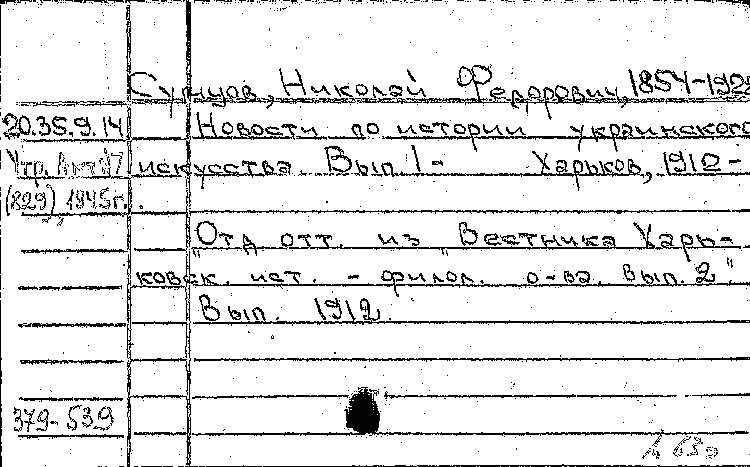 Сумцов, Николай Федорович, 1854-192
20.35.9.14 Новости по истории украинского
Утр. Акт 17 искусства. Вып. 1- Харьков, 1912-
(829), 1945г.
"Отд. отт. из "Вестника Харь-
ковск. ист. - филол. о-ва. вып. 2".
Вып. 1912.
379-539